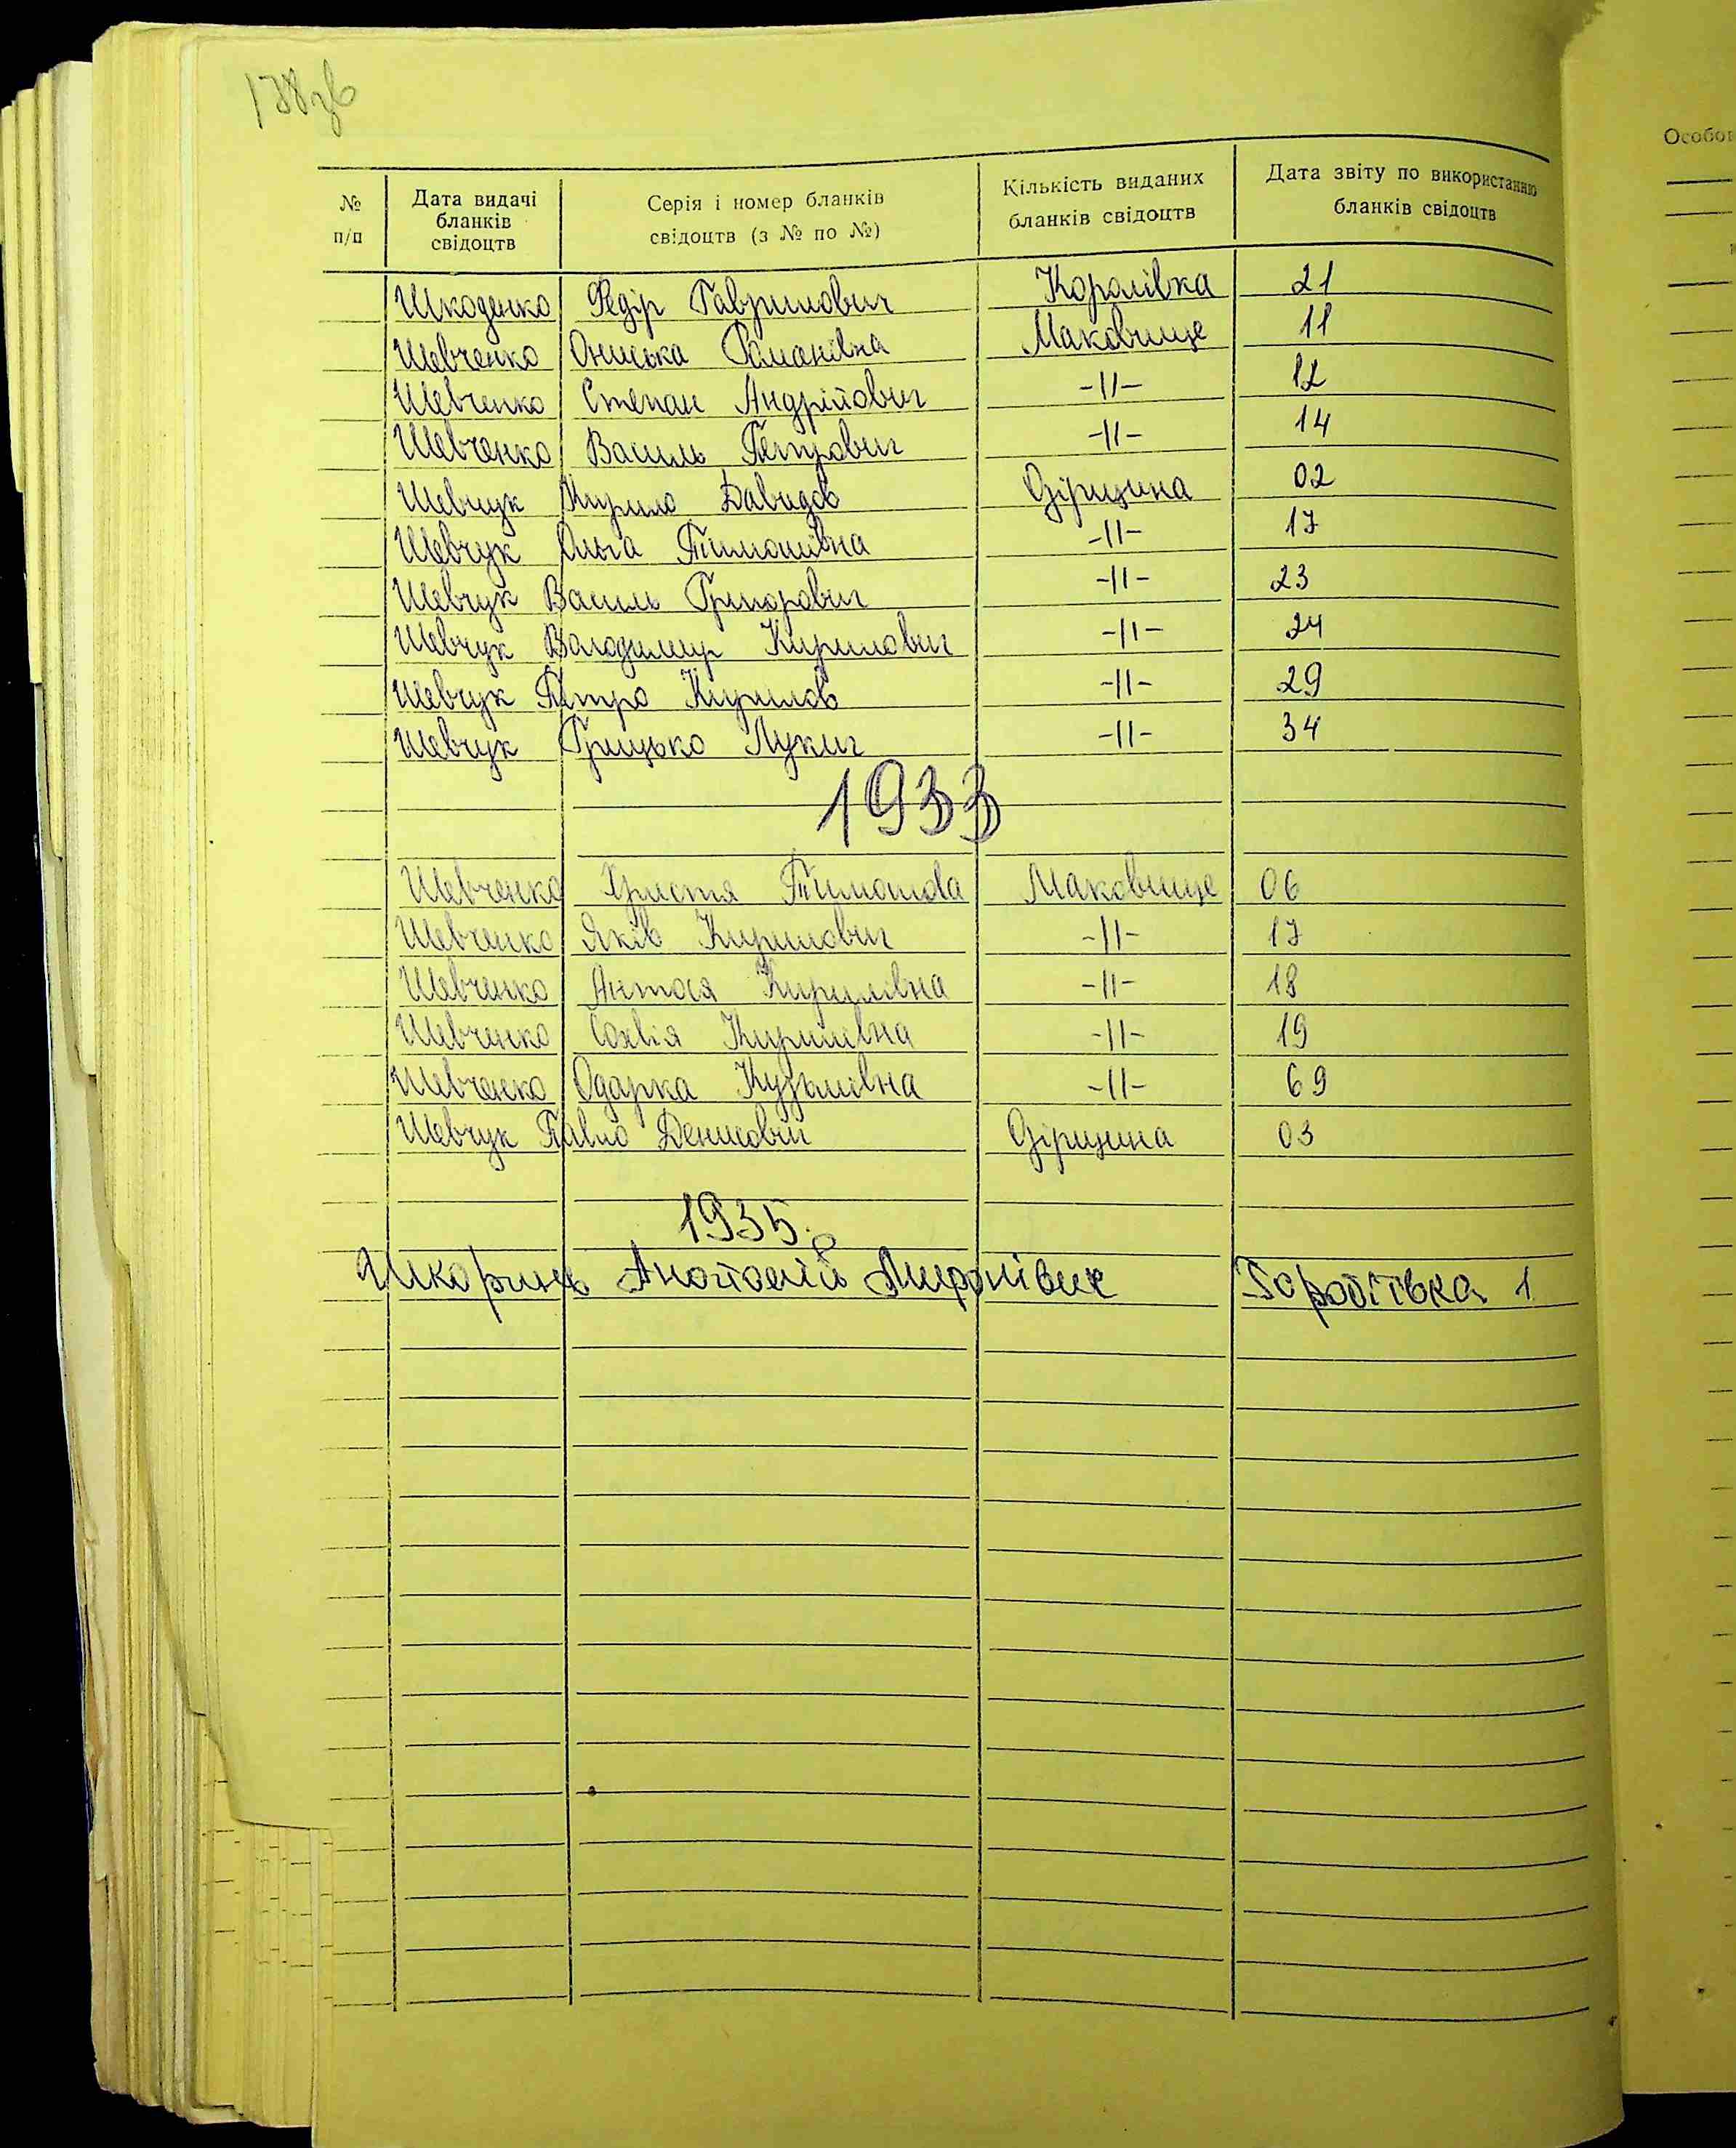 138зв
№ п/п
Дата видачі бланків свідоцтв
Серія і номер бланків свідоцтв (з № по №)
Кількість виданих бланків свідоцтв
Дата звіту по використанню бланків свідоцтв
Шкоденко Федір Гаврилович Королівка 21
Шевченко Ониська Романівна Маковище 11
Шевченко Степан Андрійович -//- 12
Шевченко Василь Петрович -//- 14
Шевчук Кирило Давидов Юрівщина 02
Шевчук Ольга Тимошівна -//- 17
Шевчук Василь Григорович -//- 23
Шевчук Володимир Кирилович -//- 24
Шевчук Петро Кирилов -//- 29
Шевчук Грицько Лукич -//- 34
1933
Шевченко Христя Тимошова Маковище 06
Шевченко Яків Кирилович -//- 17
Шевченко Антося Кирилівна -//- 18
Шевченко Софія Кирилівна -//- 19
Шевченко Одарка Кузьмівна -//- 69
Шевчук Павло Денисович 03
1935
Анатолій 1
Особов